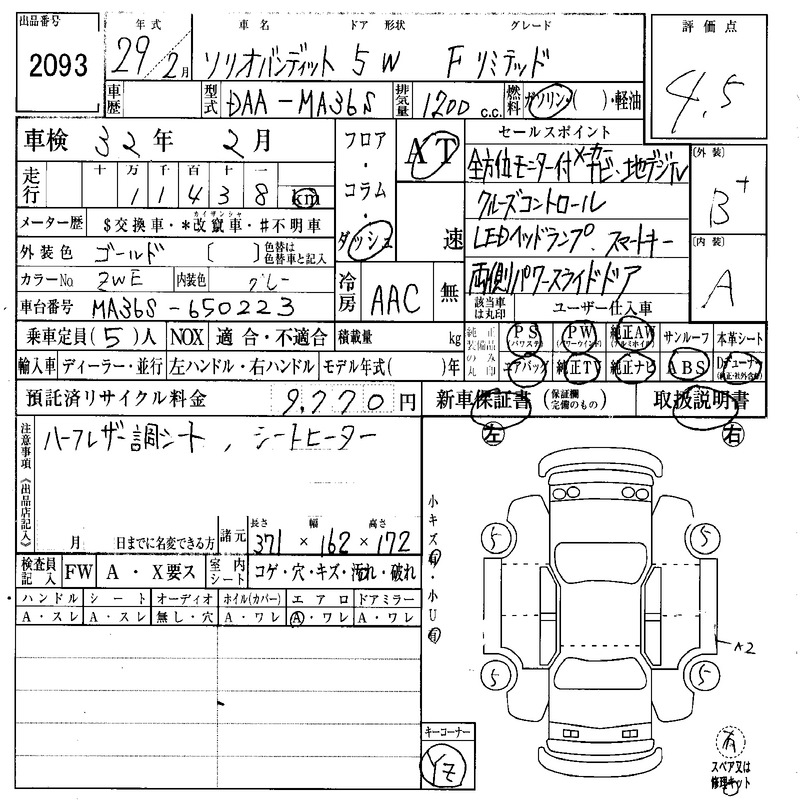 出品番号 年式 車名 ドア 形状 グレード 評価点
2093 29/2月 ソリオバンディット 5W Fリミテッド 4.5
車歴 型式 DAA-MA36S 排気量 1200 c.c. 燃料 ガソリン・( )・軽油
車検 32年 2月 フロア・コラム・ダッシュ AT 速 セールスポイント
走行 十 万 千 百 十 一
11438 km
全方位モニター付メーカーナビ、地デジTV
クルーズコントロール
LEDヘッドランプ、スマートキー
両側パワースライドドア
〔外装〕 B+
〔内装〕 A
メーター歴 $交換車・*改竄車・#不明車
カイザンシャ
外装色 ゴールド 〔 〕色替は色替車と記入
カラーNo ZWE 内装色 グレー
冷房 AAC 無
車台番号 MA36S-650223
該当車は丸印 ユーザー仕入車
乗車定員(5)人 NOX 適合・不適合 積載量 kg
純正装備品のみ丸印 PS(パワステ) PW(パワーウインド) 純正AW(アルミホイル) サンルーフ 本革シート
輸入車 ディーラー・並行 左ハンドル・右ハンドル モデル年式( )年
エアバッグ 純正TV 純正ナビ ABS Dチューナー(純正・社外含む)
預託済リサイクル料金 9,770円 新車保証書(保証欄完備のもの) 取扱説明書
注意事項《出品店記入》
ハーフレザー調シート, シートヒーター
月 日までに名変できる方
諸元 長さ 幅 高さ
371 × 162 × 172
左 右
検査員記入 FW A・X要ス 室内シート コゲ・穴・キズ・汚れ・破れ
ハンドル シート オーディオ ホイル(カバー) エアロ ドアミラー
A・スレ A・スレ 無し・穴 A・ワレ A・ワレ A・ワレ
小キズ有・小U有
5 5
5 5
A2
キーコーナー
YZ
有
スペア又は
修理キット